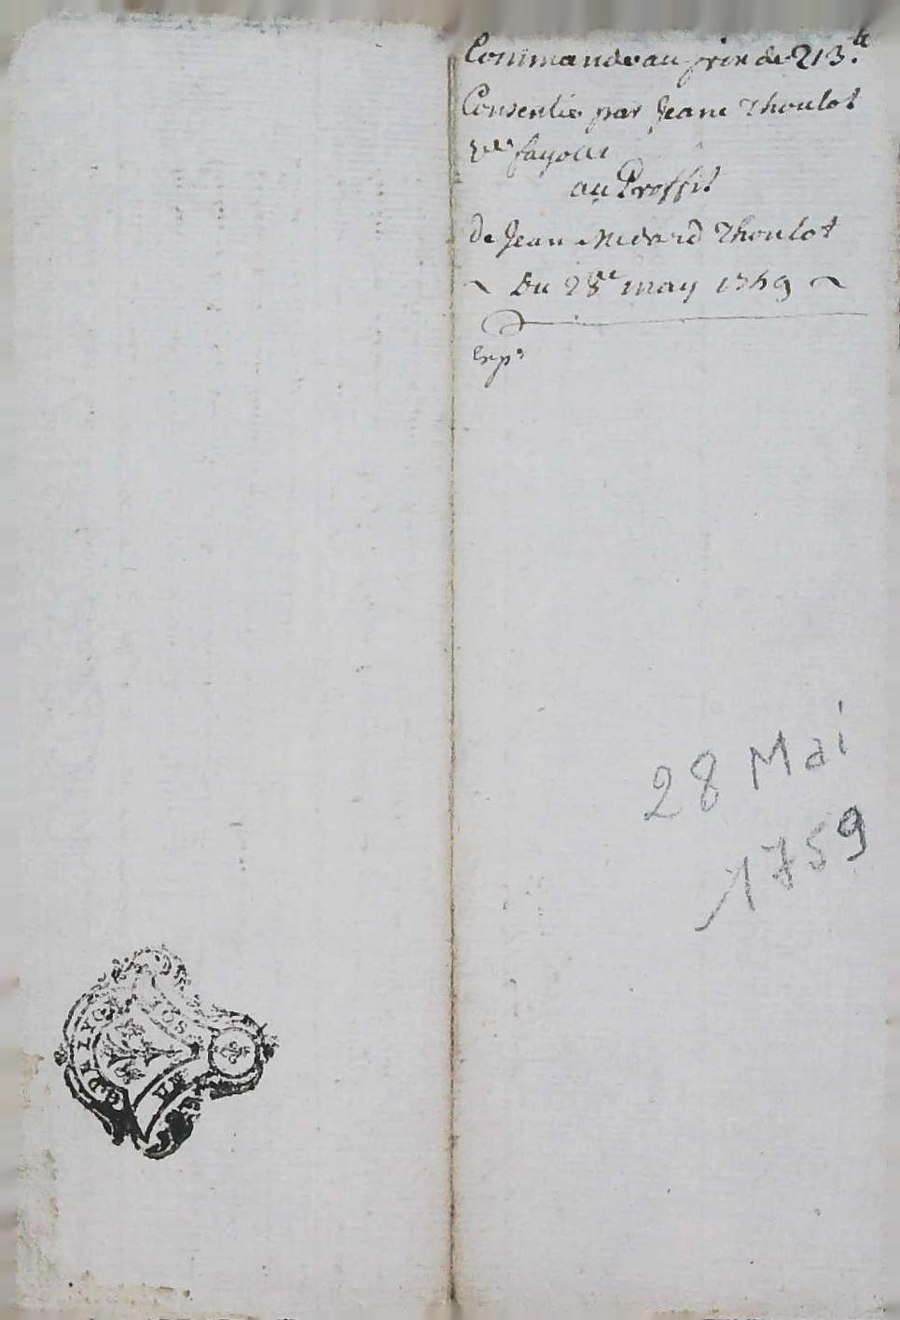 Commande au prix de 213.ᵗᵗ
Consentie par Jeane Thoulot
Vᵛᵉ fayolle
au Proffit
de Jean Medard Thoulot
~ Du 28ᵉ may 1759 ~
Expᵒ
28 Mai
1759
SOLS